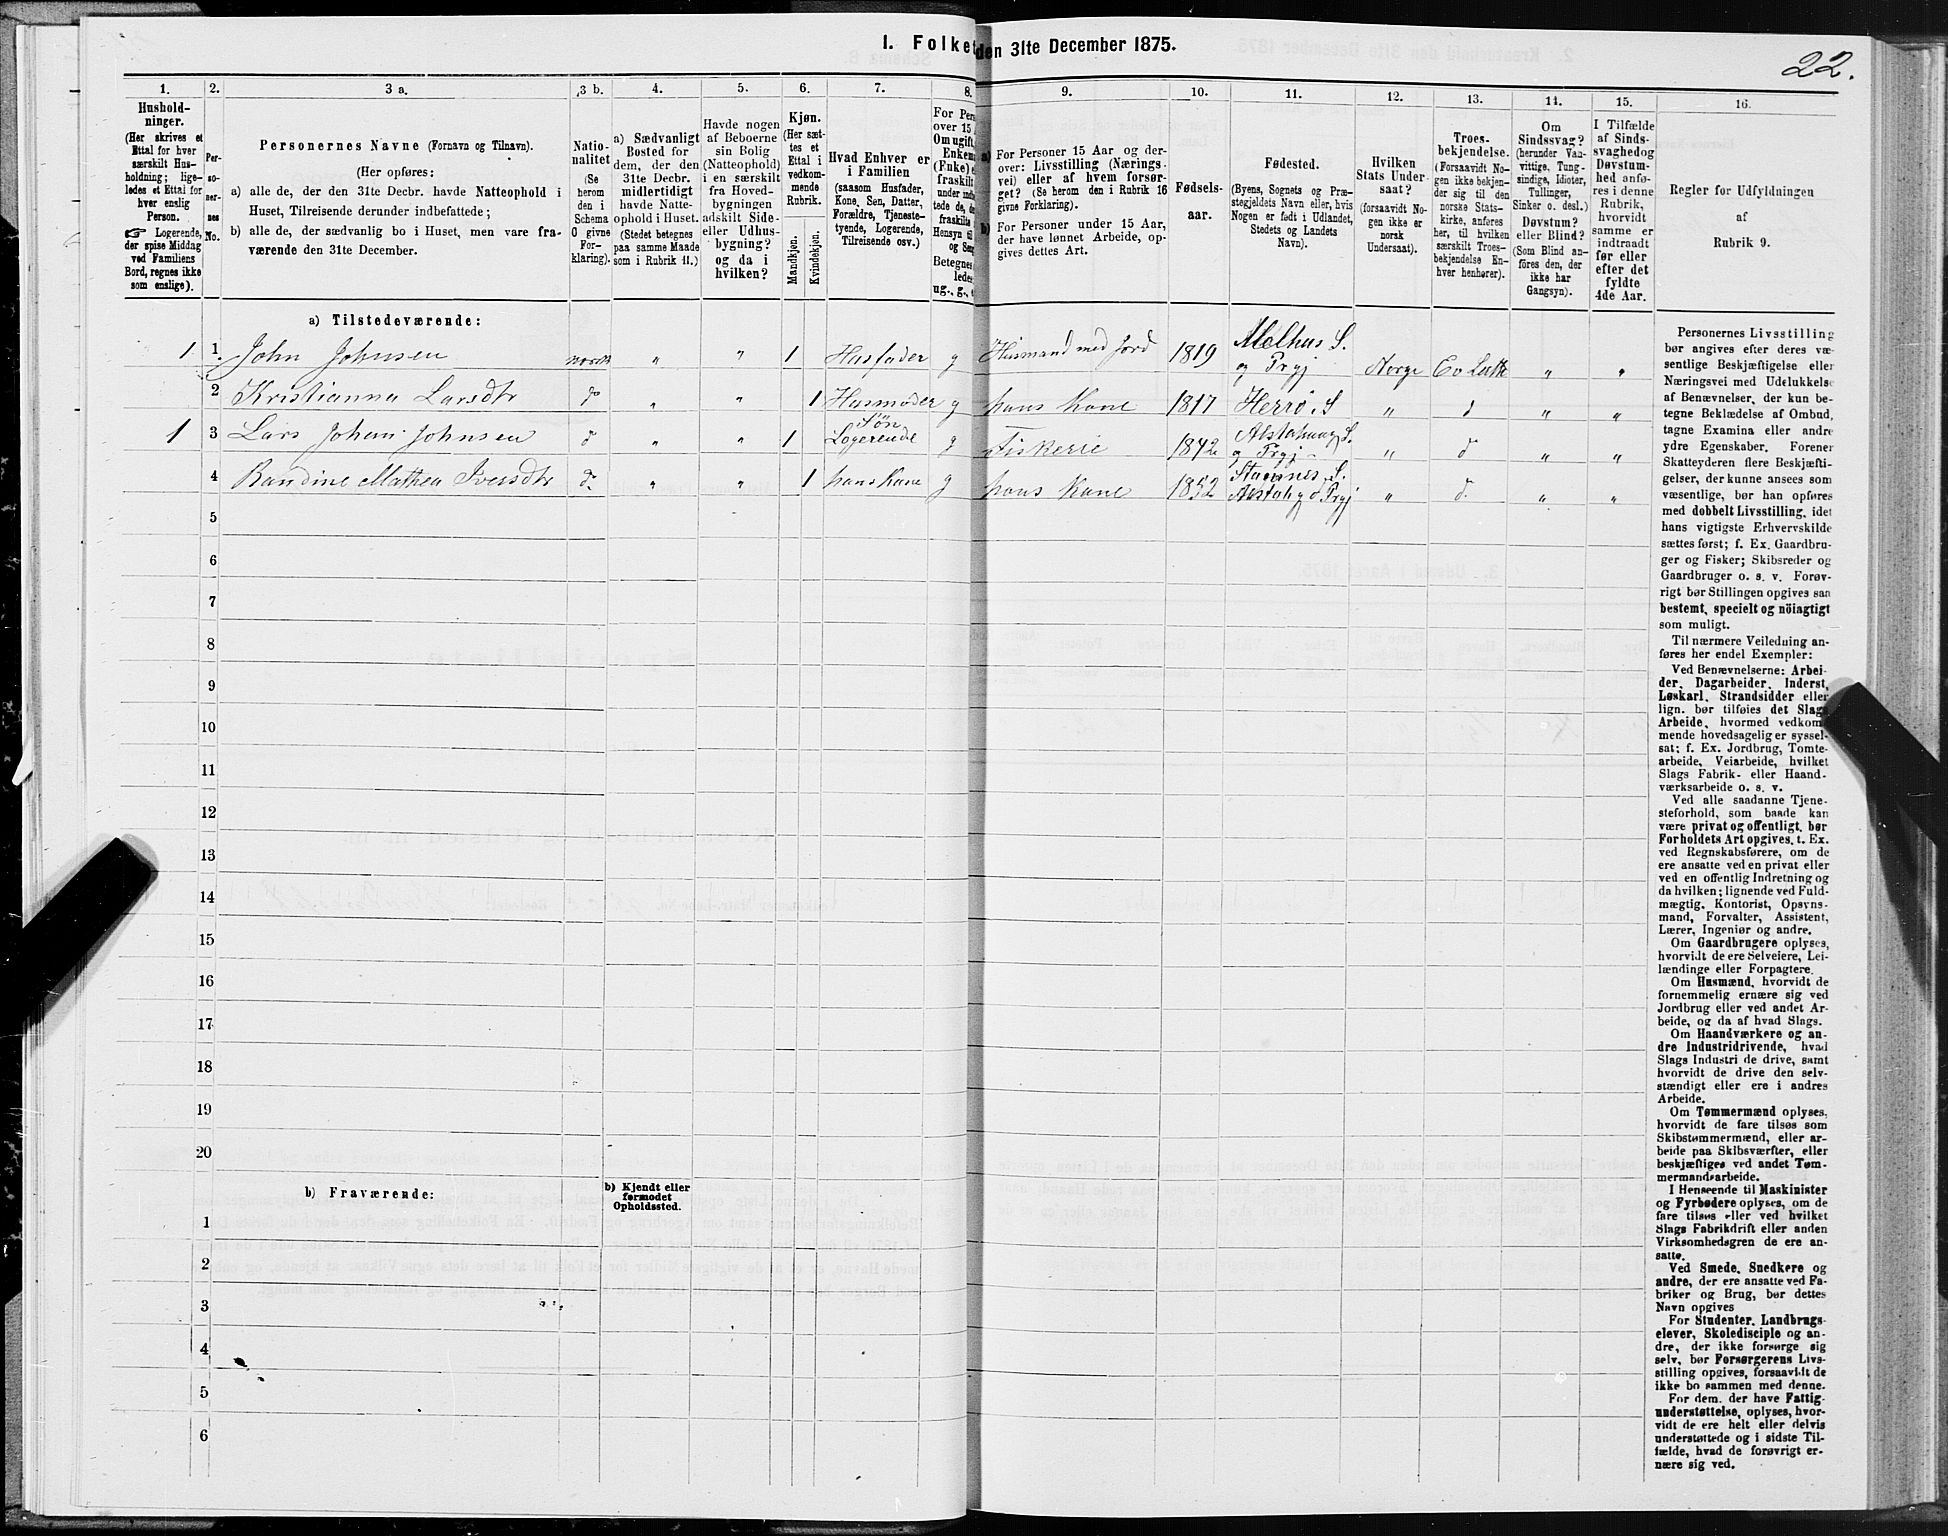 1. Folket den 31te December 1875.
22.
1.
Hushold-
ninger.
(Her skrives et
Ettal for hver
særskilt Hus-
holdning; lige-
ledes et Ettal for
hver enslig
Person.
☞ Logerende,
der spise Middag
ved Familiens
Bord, regnes ikke
som enslige).
2.
Per-
so-
ner-
nes
No.
3 a.
Personernes Navne (Fornavn og Tilnavn).
(Her opføres:
a) alle de, der den 31te Decbr. havde Natteophold i
Huset, Tilreisende derunder indbefattede;
b) alle de, der sædvanlig bo i Huset, men vare fra-
værende den 31te December.
3 b.
Natio-
nalitet
(Se
herom
den i
Schema
C givne
For-
klaring).
4.
a) Sædvanligt
Bosted for
dem, der den
31te Decbr.
midlertidigt
havde Natte-
ophold i Huset.
(Stedet betegnes
paa samme Maade
som i Rubrik 11.)
5.
Havde nogen
af Beboerne
sin Bolig
(Natteophold)
i en særskilt
fra Hoved-
bygningen
adskilt Side-
eller Udhus-
bygning?
og da i
hvilken?
6.
Kjøn.
(Her sæt-
tes et
Ettal i
vedkom-
mende
Rubrik.
Mandkjøn.
Kvindekjøn.
7.
Hvad Enhver er
i Familien
(saasom Husfader,
Kone, Søn, Datter,
Forældre, Tjeneste-
tyende, Logerende,
Tilreisende osv.)
8.
For Pers
over 15
Om ugift,
Enkem
(Enke) e
fraskilt
under inde
tede de, de
fraskilte
Hensyn til
og Sen
Betegnes
ledes
ug., g., e
9.
a) For Personer 15 Aar og der-
over: Livsstilling (Nærings-
vei) eller af hvem forsør-
get? (Se herom den i Rubrik 16
givne Forklaring).
b) For Personer under 15 Aar,
der have lønnet Arbeide, op-
gives dettes Art.
10.
Fødsels-
aar.
11.
Fødested.
(Byens, Sognets og Præ-
stegjeldets Navn eller, hvis
Nogen er født i Udlandet,
Stedets og Landets
Navn).
12.
Hvilken
Stats Under-
saat?
(forsaavidt No-
gen ikke er
norsk
Undersaat).
13.
Troes-
bekjendelse.
(Forsaavidt No-
gen ikke bekjen-
der sig til den
norske Stats-
kirke, anføres
her, til hvilken
særskilt Troes-
bekjendelse En-
hver henhører).
14.
Om
Sindssvag?
(herunder Van-
vittige, Tung-
sindige, Idioter,
Tullinger,
Sinker o. desl.)
Døvstum?
eller Blind?
(Som Blind an-
føres den, der
ikke har
Gangsyn).
15.
I Tilfælde
af Sinds-
svaghed og
Døvstum-
hed anfø-
res i denne
Rubrik,
hvorvidt
samme er
indtraadt
før eller
efter det
fyldte
4de Aar.
16.
Regler for Udfyldningen
af
Rubrik 9.
a) Tilstedeværende:
1 1. John Johnsen norsk " " 1 Husfader g Husmand med Jord 1819 Melhus S. og Prgj Norge Ev Luth " "
2 Kristianna Larsdtr d " " 1 Husmoder g hans Kone 1817 Herrø S " d " "
1 3 Lars Johan Johnsen d " " 1 Søn Logerende g Fiskerie 1842 Alstahaug S. og Prgj " d " "
4 Randine Mathea Iversdtr d. " " 1 hans Kone g hans Kone 1852 Stamnes S. Alstahg Prgj " d. " "
5
6
7
8
9
10
11
12
13
14
15
16
17
18
19
20
b) Fraværende:
b) Kjendt eller
formodet
Opholdssted.
1
2
3
4
5
6
Personernes Livsstilling
bør angives efter deres væ-
sentlige Beskjæftigelse eller
Næringsvei med Udelukkelse
af Benævnelser, der kun be-
tegne Beklædelse af Ombud,
tagne Examina eller andre
ydre Egenskaber. Forener
Skatteyderen flere Beskjæfti-
gelser, der kunne ansees som
væsentlige, bør han opføres
med dobbelt Livsstilling, idet
hans vigtigste Erhvervskilde
sættes først; f. Ex. Gaardbru-
ger og Fisker; Skibsreder og
Gaardbruger o. s. v. Forøv-
rigt bør Stillingen opgives saa
bestemt, specielt og nöiagtigt
som muligt.
Til nærmere Veiledning an-
føres her endel Exempler:
Ved Benævnelserne: Arbei-
der, Dagarbeider, Inderst,
Løskarl, Strandsidder eller
lign. bør tilføies det Slags
Arbeide, hvormed vedkom-
mende hovedsagelig er syssel-
sat; f. Ex. Jordbrug, Tomte-
arbeide, Veiarbeide, hvilket
Slags Fabrik- eller Haand-
værksarbeide o. s. v.
Ved alle saadanne Tjene-
steforhold, som baade kan
være privat og offentligt, bør
Forholdets Art opgives, t. Ex.
ved Regnskabsførere, om de
ere ansatte ved en privat eller
ved en offentlig Indretning og
da hvilken; lignende ved Fuld-
mægtig, Kontorist, Opsyns-
mand, Forvalter, Assistent,
Lærer, Ingeniør og andre.
Om Gaardbrugere oplyses,
hvorvidt de ere Selveiere, Lei-
lændinge eller Forpagtere.
Om Husmænd, hvorvidt de
fornemmelig ernære sig ved
Jordbrug eller ved andet Ar-
beide, og da af hvad Slags.
Om Haandværkere og an-
dre Industridrivende, hvad
Slags Industri de drive, samt
hvorvidt de drive den selv-
stændigt eller ere i andres
Arbeide.
Om Tømmermænd oplyses,
hvorvidt de fare tilsøs som
Skibstømmermænd, eller ar-
beide paa Skibsværfter, eller
beskjæftiges ved andet Tøm-
mermandsarbeide.
I Henseende til Maskinister
og Fyrbødere oplyses, om de
fare tilsøs eller ved hvilket
Slags Fabrikdrift eller anden
Virksomhedsgren de ere an-
satte.
Ved Smede, Snedkere og
andre, der ere ansatte ved Fa-
briker og Brug, bør dettes
Navn opgives
For Studenter, Landbrugs-
elever, Skoledisciple og an-
dre, der ikke forsørge sig
selv, bør Forsørgerens Livs-
stilling opgives, forsaavidt de
ikke bo sammen med denne.
For dem, der have Fattig-
understøttelse, oplyses, hvor-
vidt de ere helt eller delvis
understøttede og i sidste Til-
fælde, hvad de forøvrigt er-
nære sig ved.